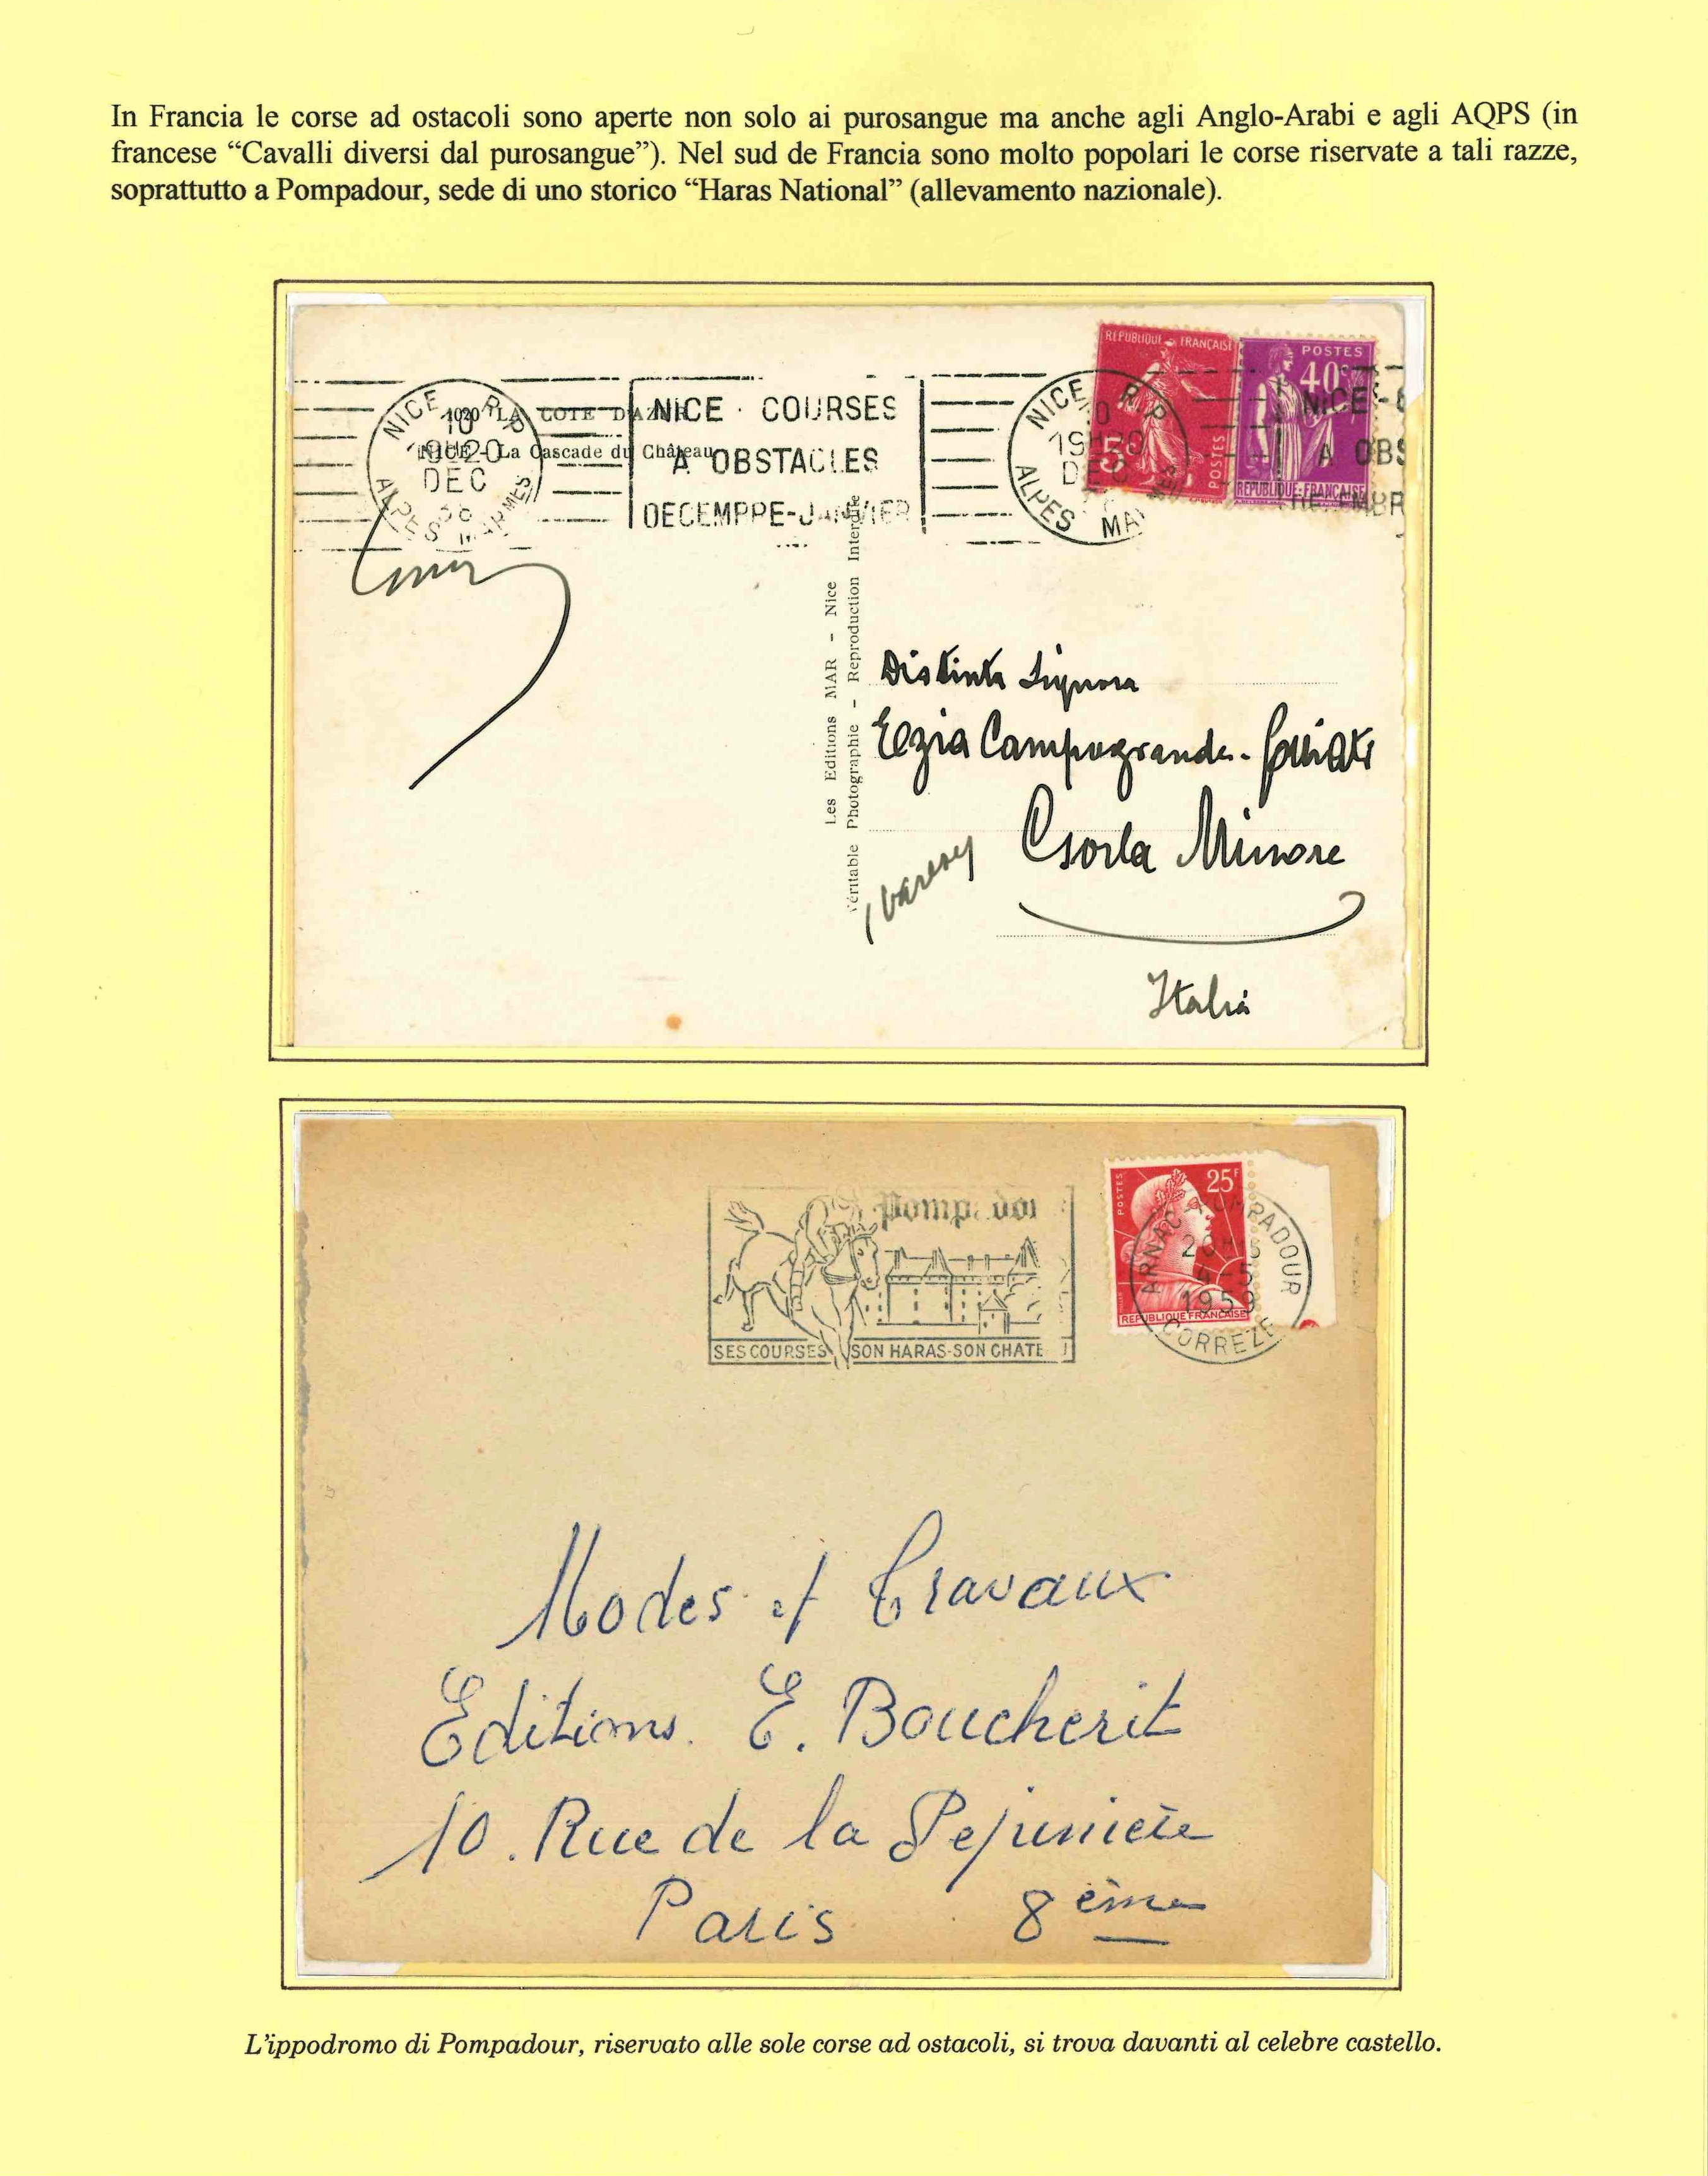 In Francia le corse ad ostacoli sono aperte non solo ai purosangue ma anche agli Anglo-Arabi e agli AQPS (in
francese “Cavalli diversi dal purosangue”). Nel sud de Francia sono molto popolari le corse riservate a tali razze,
soprattutto a Pompadour, sede di uno storico “Haras National” (allevamento nazionale).
REPUBLIQUE FRANÇAISE
5
POSTES
POSTES
40c
REPUBLIQUE FRANÇAISE
NICE R.P.
10
19H20
DEC
ALPES MARMES
1020 LA COTE D'AZUR
NICE - La Cascade du Château
NICE - COURSES
A OBSTACLES
DECEMBRE-JANVIER
NICE R.P.
10
19H20
DEC
ALPES MA
NICE-
A OBS
Les Editions MAR - Nice
Véritable Photographie - Reproduction Interdite
Distinta Signora
Ezia Campogrande-
Minore
(Varese)
Italia
Pompadour
SES COURSES SON HARAS-SON CHATE
POSTES
25F
REPUBLIQUE FRANÇAISE
ARNAC POMPADOUR
4-5
1959
CORREZE
Modes et Travaux
Editions. E. Boucherit
10. Rue de la Pepinière
Paris 8ème
L'ippodromo di Pompadour, riservato alle sole corse ad ostacoli, si trova davanti al celebre castello.